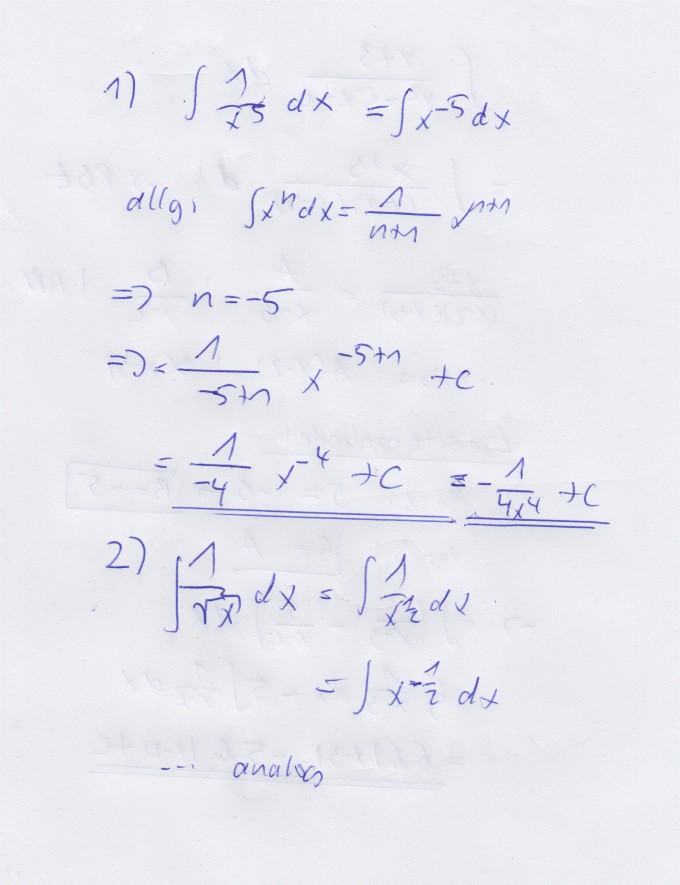 1) ∫ 1/x^5 dx = ∫ x^-5 dx
allg. ∫ x^n dx = 1/(n+1) x^(n+1)
=> n = -5
=> = 1/(-5+1) x^(-5+1) + C
= 1/(-4) x^-4 + C = - 1/(4x^4) + C
2) ∫ 1/√x dx = ∫ 1/x^(1/2) dx
= ∫ x^(-1/2) dx
... analog